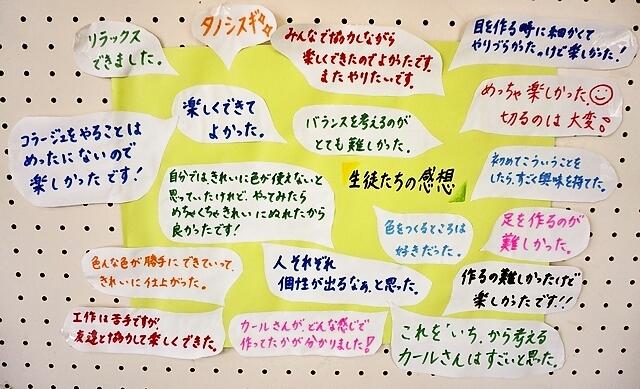 リラックス
できました。
タノシスギ
みんなで協力しながら
楽しくできたのでよかったです。
またやりたいです。
目を作る時に細かくて
やりづらかったけど楽しかった！
コラージュをやることは
めったにないので
楽しかったです！
楽しくできて
よかった。
バランスを考えるのが
とても難しかった。
めっちゃ楽しかった
切るのは大変。
自分ではきれいに色が使えないと
思っていたけれど、やってみたら
めちゃくちゃきれいにぬれたから
良かったです！
生徒たちの感想
初めてこういうことを
したら、すごく興味を持てた。
色をつくるところは
好きだった。
足を作るのが
難しかった。
色んな色が勝手にできていって、
きれいに仕上がった。
人それぞれ
個性が出るなぁ、と思った。
作るの難しかったけど
楽しかったです!!
工作は苦手ですが、
友達と協力して楽しくできた。
カールさんが、どんな感じで
作ってたかが分かりました！
これを"いち"から考える
カールさんはすごいと思った。